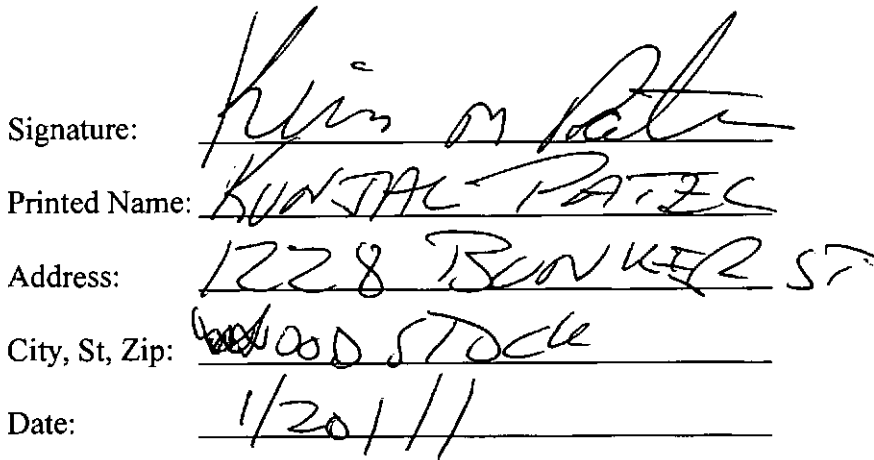 Signature: Kim M Patel
Printed Name: KUNJAL PATEL
Address: 1228 BUNKER ST
City, St, Zip: WOODSTOCK
Date: 1/20/11